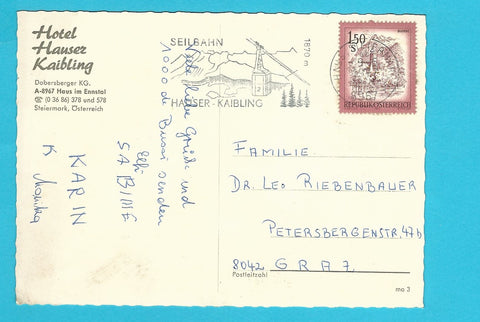 Hotel
Hauser
Kaibling
Dobersberger KG.
A-8967 Haus im Ennstal
☎ (0 36 86) 378 und 578
Steiermark, Österreich
SEILBAHN
1870 m
HAUSER-KAIBLING
1.50
S
REPUBLIK ÖSTERREICH
Viele liebe Grüße und
1000 de Bussi senden
Elfi
SABINE
KARIN
K
FAMILIE
DR. LEO RIEBENBAUER
PETERSBERGENSTR. 47b
8042 GRAZ
Postleitzahl
ma 3